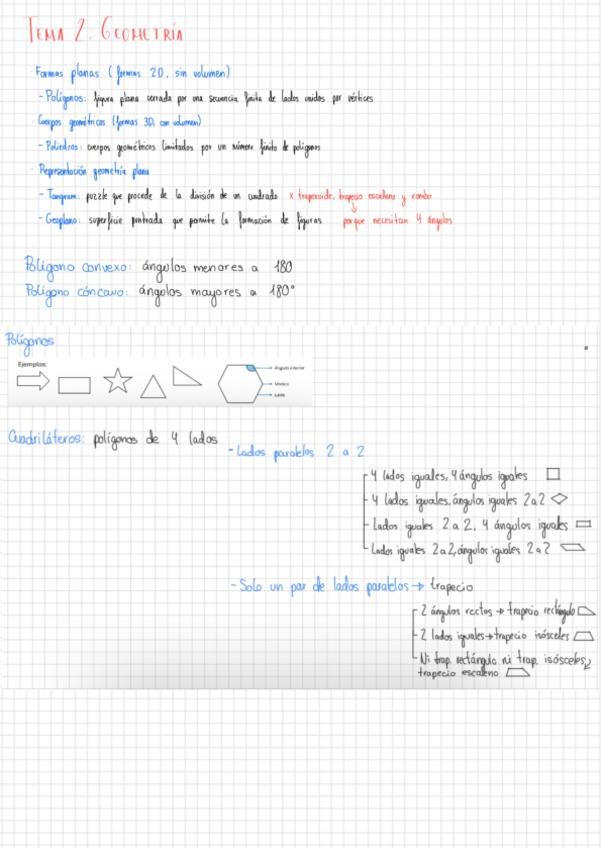 TEMA 2. GEOMETRÍA
Formas planas (formas 2D, sin volumen)
- Polígonos: figura plana cerrada por una secuencia finita de lados unidos por vértices
Cuerpos geométricos (formas 3D, con volumen)
- Poliedros: cuerpos geométricos limitados por un número finito de polígonos
Representación geometría plana
- Tangram: puzzle que procede de la división de un cuadrado x trapezoide, trapecio escaleno y rombo
- Geoplano: superficie punteada que permite la formación de figuras porque necesitan 4 ángulos
Polígono convexo: ángulos menores a 180
Polígono cóncavo: ángulos mayores a 180°
Polígonos
Ejemplos:
Ángulo interior
Vértice
Lado
Cuadriláteros: polígonos de 4 lados
- Lados paralelos 2 a 2
4 lados iguales, 4 ángulos iguales
4 lados iguales, ángulos iguales 2a2
Lados iguales 2 a 2, 4 ángulos iguales
Lados iguales 2a2, ángulos iguales 2a2
- Solo un par de lados paralelos → trapecio
2 ángulos rectos → trapecio rectángulo
2 lados iguales → trapecio isósceles
Ni trap. rectángulo ni trap. isósceles,
trapecio escaleno